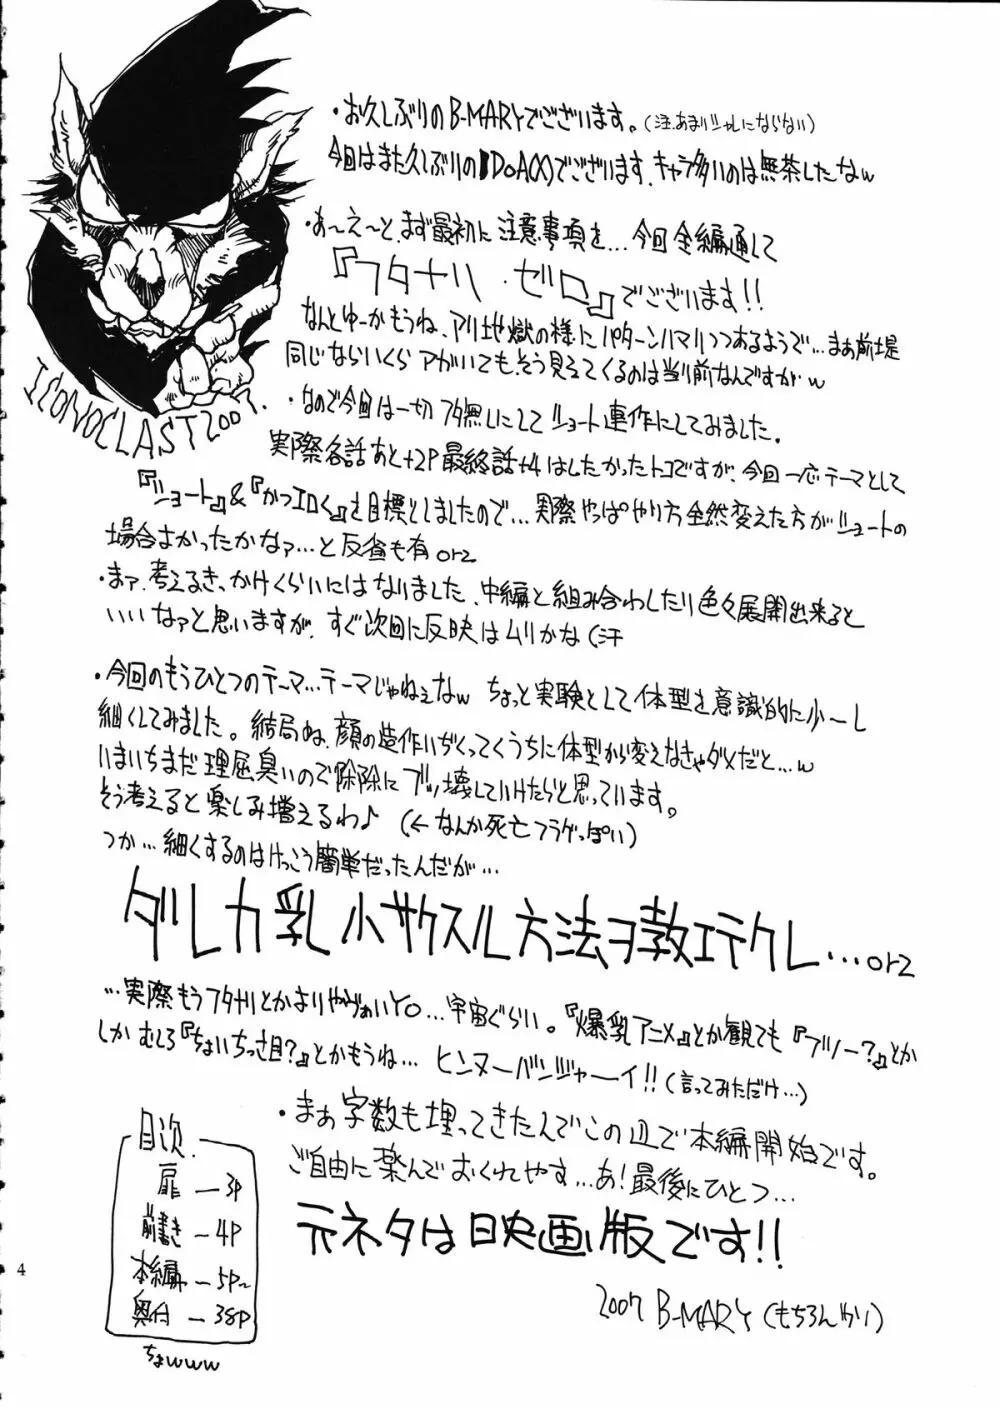 ・お久しぶりのB-MARYでございます。(注.あまりシャレにならない)
今回はまた久しぶりのDOA(X)でございます、キャラ多いのは無茶したなw
・あ〜え〜と、まず最初に注意事項を…今回全編通して
『フタナリ・ゼロ』でございます!!
なんとゆーかもうね、アリ地獄の様にパターンハマりつつあるようで…まあ前提
同じならいくらアガいても、そう見えてくるのは当り前なんですがw
ICONOCLAST2007.
・なので今回は一切フタ無しにしてショート連作にしてみました。
実際各話あと+2P最終話+4はしたかったトコですが、今回一応テーマとして
『ショート』&『かつエロく』を目標としましたので…実際やっぱやり方全然変えた方がショートの
場合よかったかなァ…と反省も有orz
・まァ、考えるきっかけくらいにはなりました、中編と組み合わしたり色々展開出来ると
いいなァと思いますが、すぐ次回に反映はムリかな(汗
・今回のもうひとつのテーマ…テーマじゃねぇなw ちょっと実験として体型を意識的に少〜し
細くしてみました。結局ね、顔の造作いぢくってくうちに体型から変えなきゃダメだと…w
いまいちまだ理屈臭いので除除にブッ壊していけたらと思っています。
そう考えると楽しみ増えるわ♪ (←なんか死亡フラグっぽい)
つか…細くするのはけっこう簡単だったんだが…
ダレカ乳小サクスル方法ヲ教エテクレ…orz
…実際もうフタナリとかよりヤヴァいYO…宇宙ぐらい。『爆乳アニメ』とか観ても『フツー?』とか
しかむしろ『ちょいちっさ目?』とかもうね… ヒンヌーバンジャーイ!!(言ってみただけ…)
・まぁ字数も埋ってきたんでこの辺で本編開始です。
ご自由に楽んでおくれやす…あ!最後にひとつ…
元ネタは映画版です!!
2007 B-MARY(もちろんかり)
目次
扉—3P
前書き—4P
本編—5P〜
奥付—38P
ちょwww
4